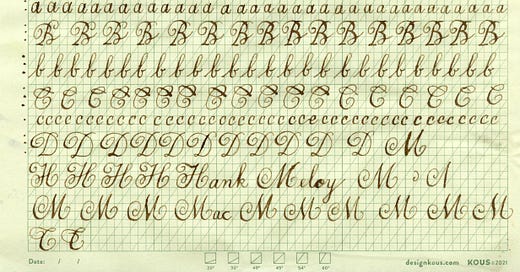 a a a a a a a a a a a a a a a a a a a a a a a a a a a
B B B B B B B B B B B B B B B B B
b b b b b b b b b b b b b b b b b b b b b b b b b b b
C C C C C C C C C C C C C C C C C
c c c c c c c c c c c c c c c c c c c c c c c c c c c c c c c c c c c
D D D D D D D D D D D D M
H H H H Hank Meloy M M
M M M Mac M M M M M M
C C
Date: / /
20° 30° 45° 49° 54° 60°
designkous.com KOUS©2021